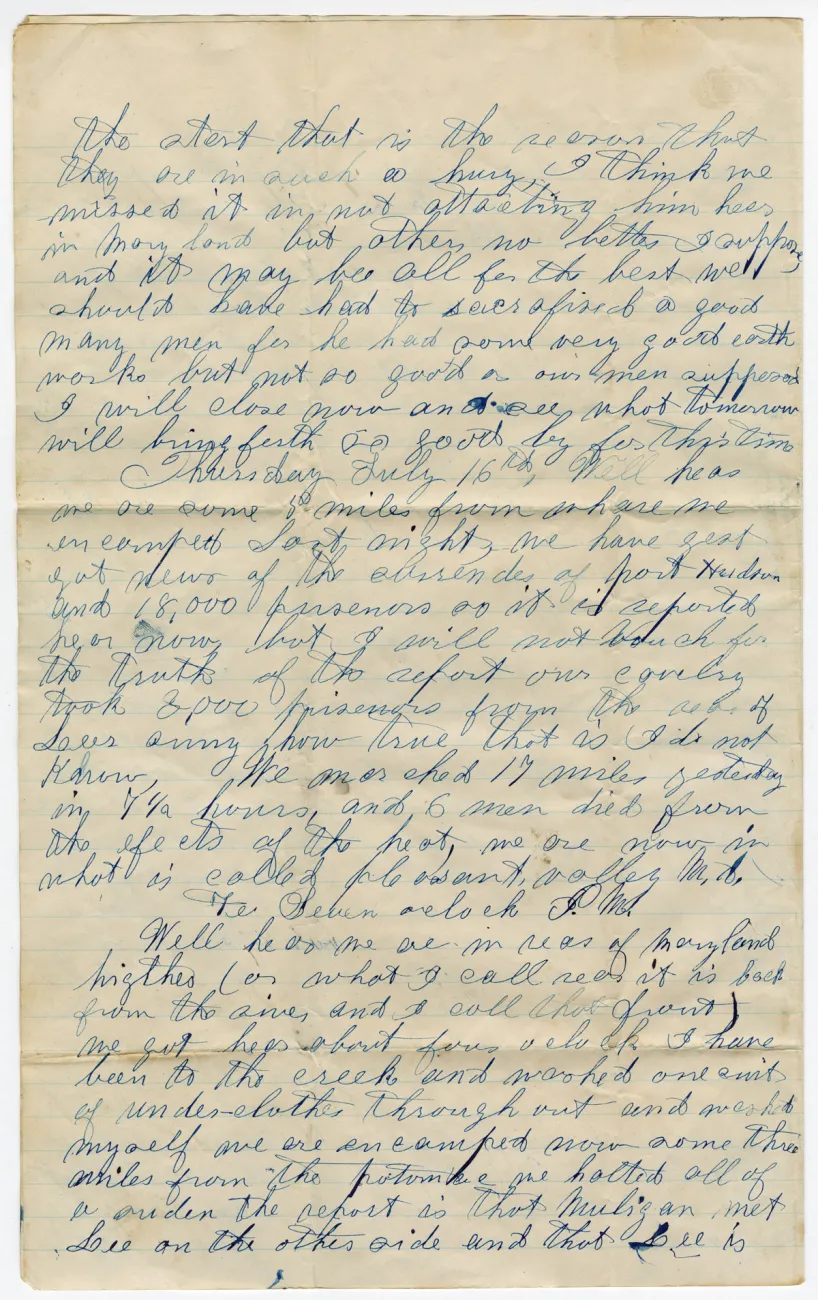 the start that is the reason that
they are in such a hury, I think we
missed it in not attacting him hear
in Mary land but others no better I suppose,
and it may bee all for the best we
should have had to sacrafised a good
many men for he had some very good earth
works but not so good as our men supposed
I will close now and see what tomorrow
will bring forth so good by for this time
Thursday July 16th, Well hear
we are some 8 miles from whare we
encamped Last night, we have gest
got news of the surrender of port Hudson
and 18,000 prisenors so it is reported
hear now, but I will not vouch for
the truth of the report our cavelry
took 3,000 prisenors from the rear of
Lees army, how true that is I do not
Know, We marched 17 miles yesterday
in 7 1/2 hours, and 6 men died from
the efects of the heat, we are now in
what is called pleasant, valley M.d,
Seven oclock P.M.
Well hear we are in rear of maryland
higthes, (or what I call rear it is back
from the river and I call that front)
we got hear about four oclock I have
been to the creek and washed one suit
of under-clothes through out and washed
myself we are encamped now some three
miles from the potomac we halted all of
a suden the report is that Muligan met
Lee on the other side and that Lee is